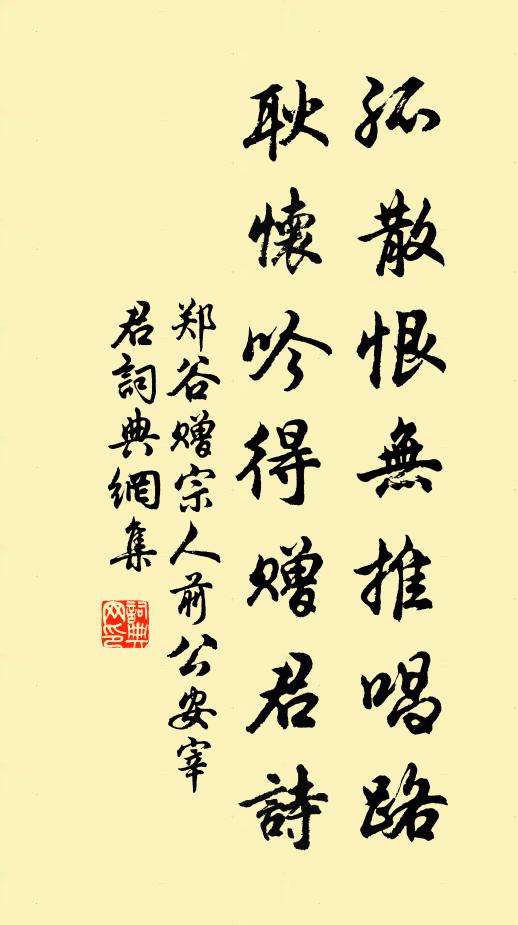 孤散恨無推唱路
耿懷吟得赠君詩
郑谷赠宗人前公安宰
君詞典網集
詞典
网印